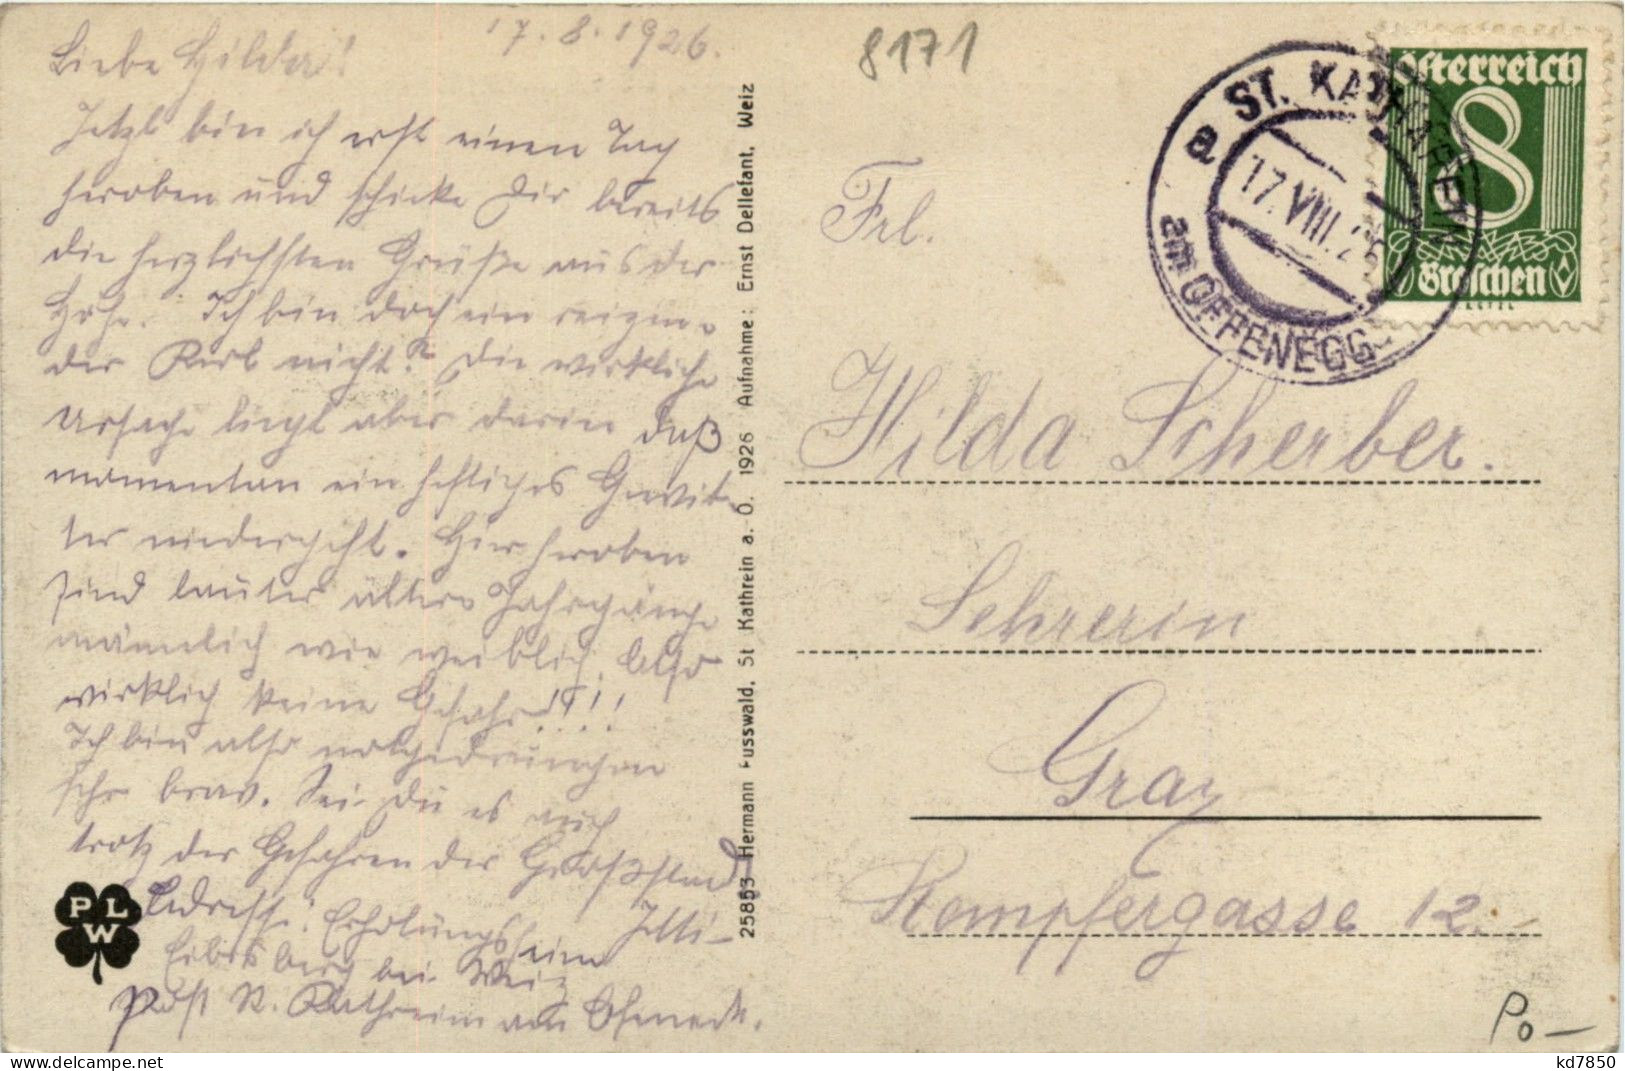 17.8.1926.
Liebe Hilda!
Jetzt bin ich erst einen Tag
heroben und schicke Dir bereits
die herzlichsten Grüße aus der
Höhe. Ich bin doch ein reizen-
der Kerl nicht? Die wirkliche
Ursache liegt aber darin daß
momentan ein heftiges Gewit-
ter niedergeht. Hier heroben
sind lauter ältere Jahrgänge
männlich wie weiblich. Also
wirklich keine Gefahr!!!!
Ich bin also notgedrungen
sehr brav. Sei Du es auch
trotz der Gefahren der Großstadt
Adresse: Erholungsheim
Eibisberg bei Weiz
Post St. Kathrein am Offeneck.
PLW
25853 Hermann Fusswald, St Kathrein a. O. 1926 Aufnahme: Ernst Dellefant, Weiz
8171
a ST. KATHAREIN
17.VIII.26
am OFFENEGG
Österreich
8
Groschen
Frl.
Hilda Scherber.
Lehrerin
Graz
Kempfergasse 12.
Po –
kd7850